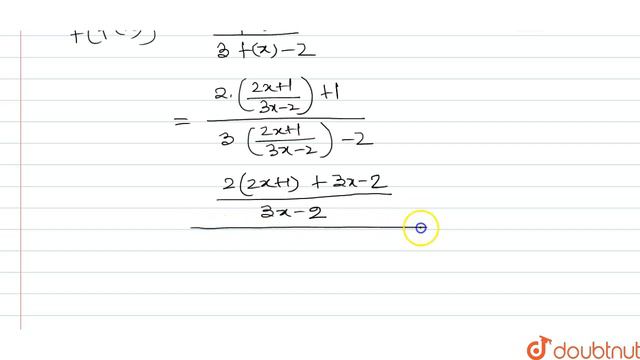 f(f(x))
3 f(x) - 2
= (2.((2x+1)/(3x-2)) +1)/(3((2x+1)/(3x-2)) -2)
2(2x+1) + 3x-2
3x-2
doubtnut